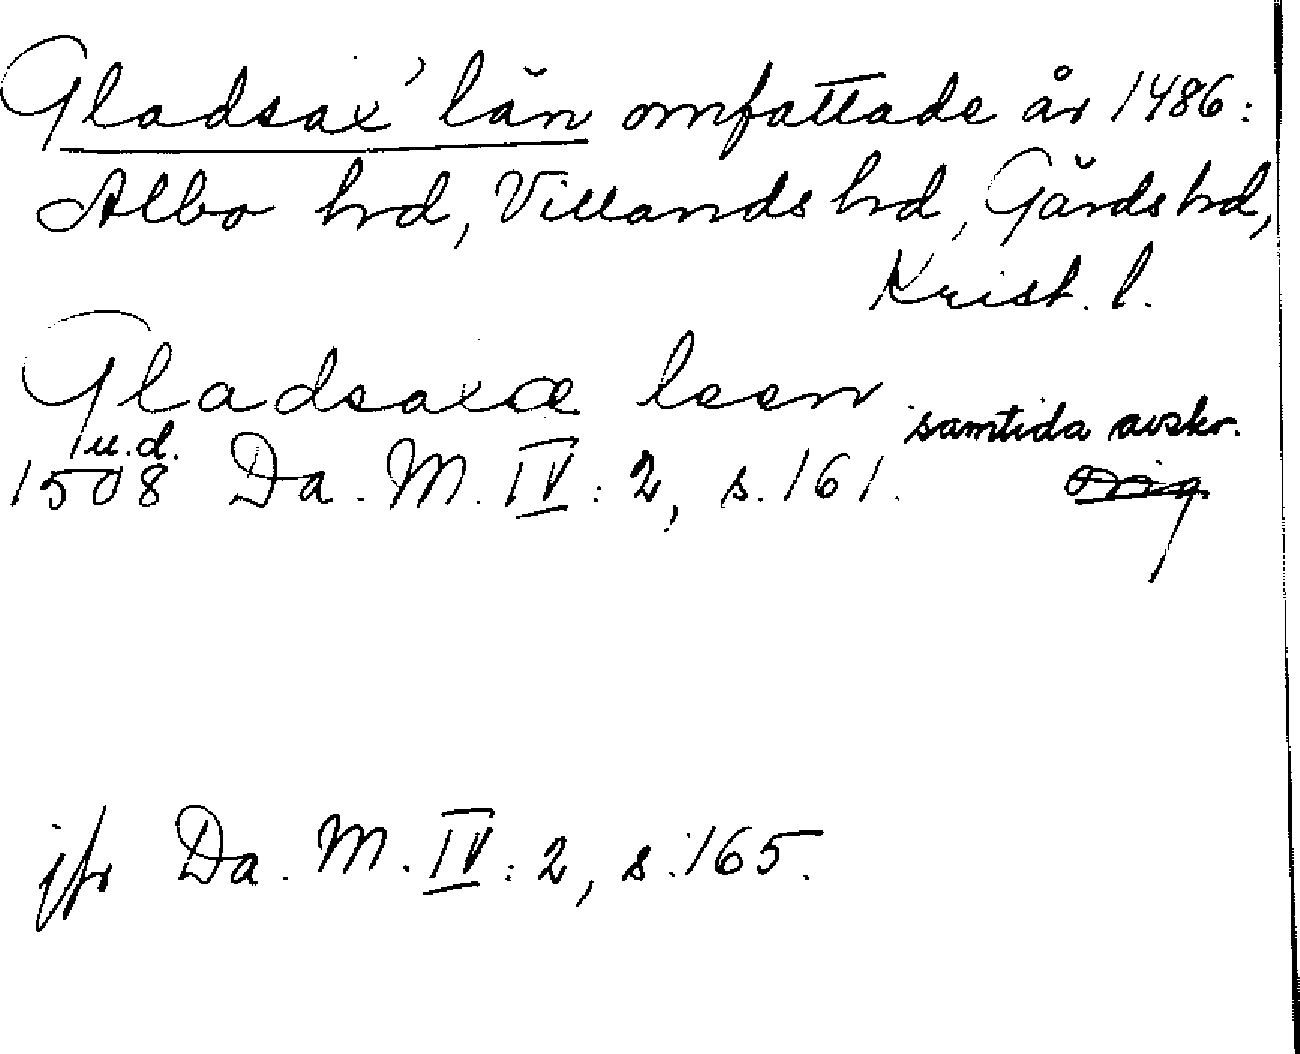 Gladsax' län omfattade år 1486:
Albo hrd, Villands hrd, Gärds hrd,
Krist. l.
Gladsaxæ leen
samtida avskr.
u.d.
1508 Da. M. IV: 2, s. 161. orig
jfr Da. M. IV: 2, s. 165.